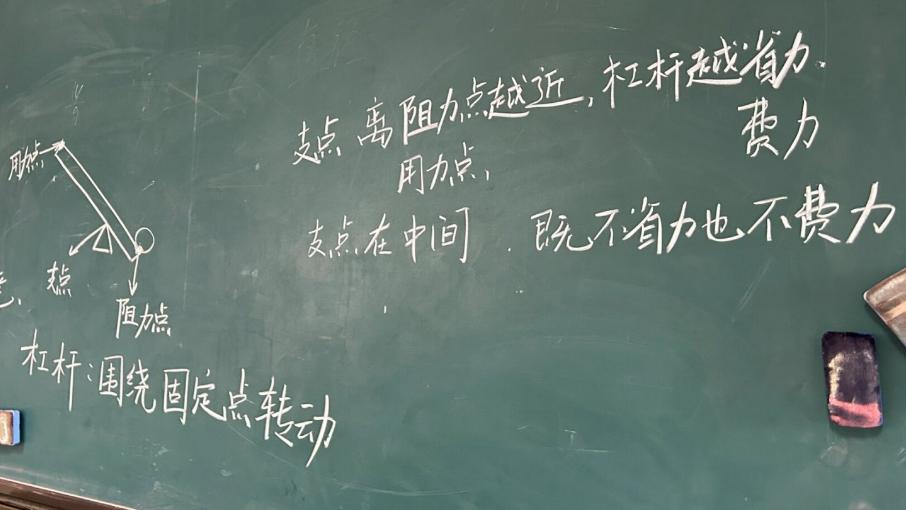 支点离阻力点越近,杠杆越省力.
用力点, 费力
支点在中间 . 既不省力也不费力
用力点
支点
阻力点
杠杆:围绕固定点转动